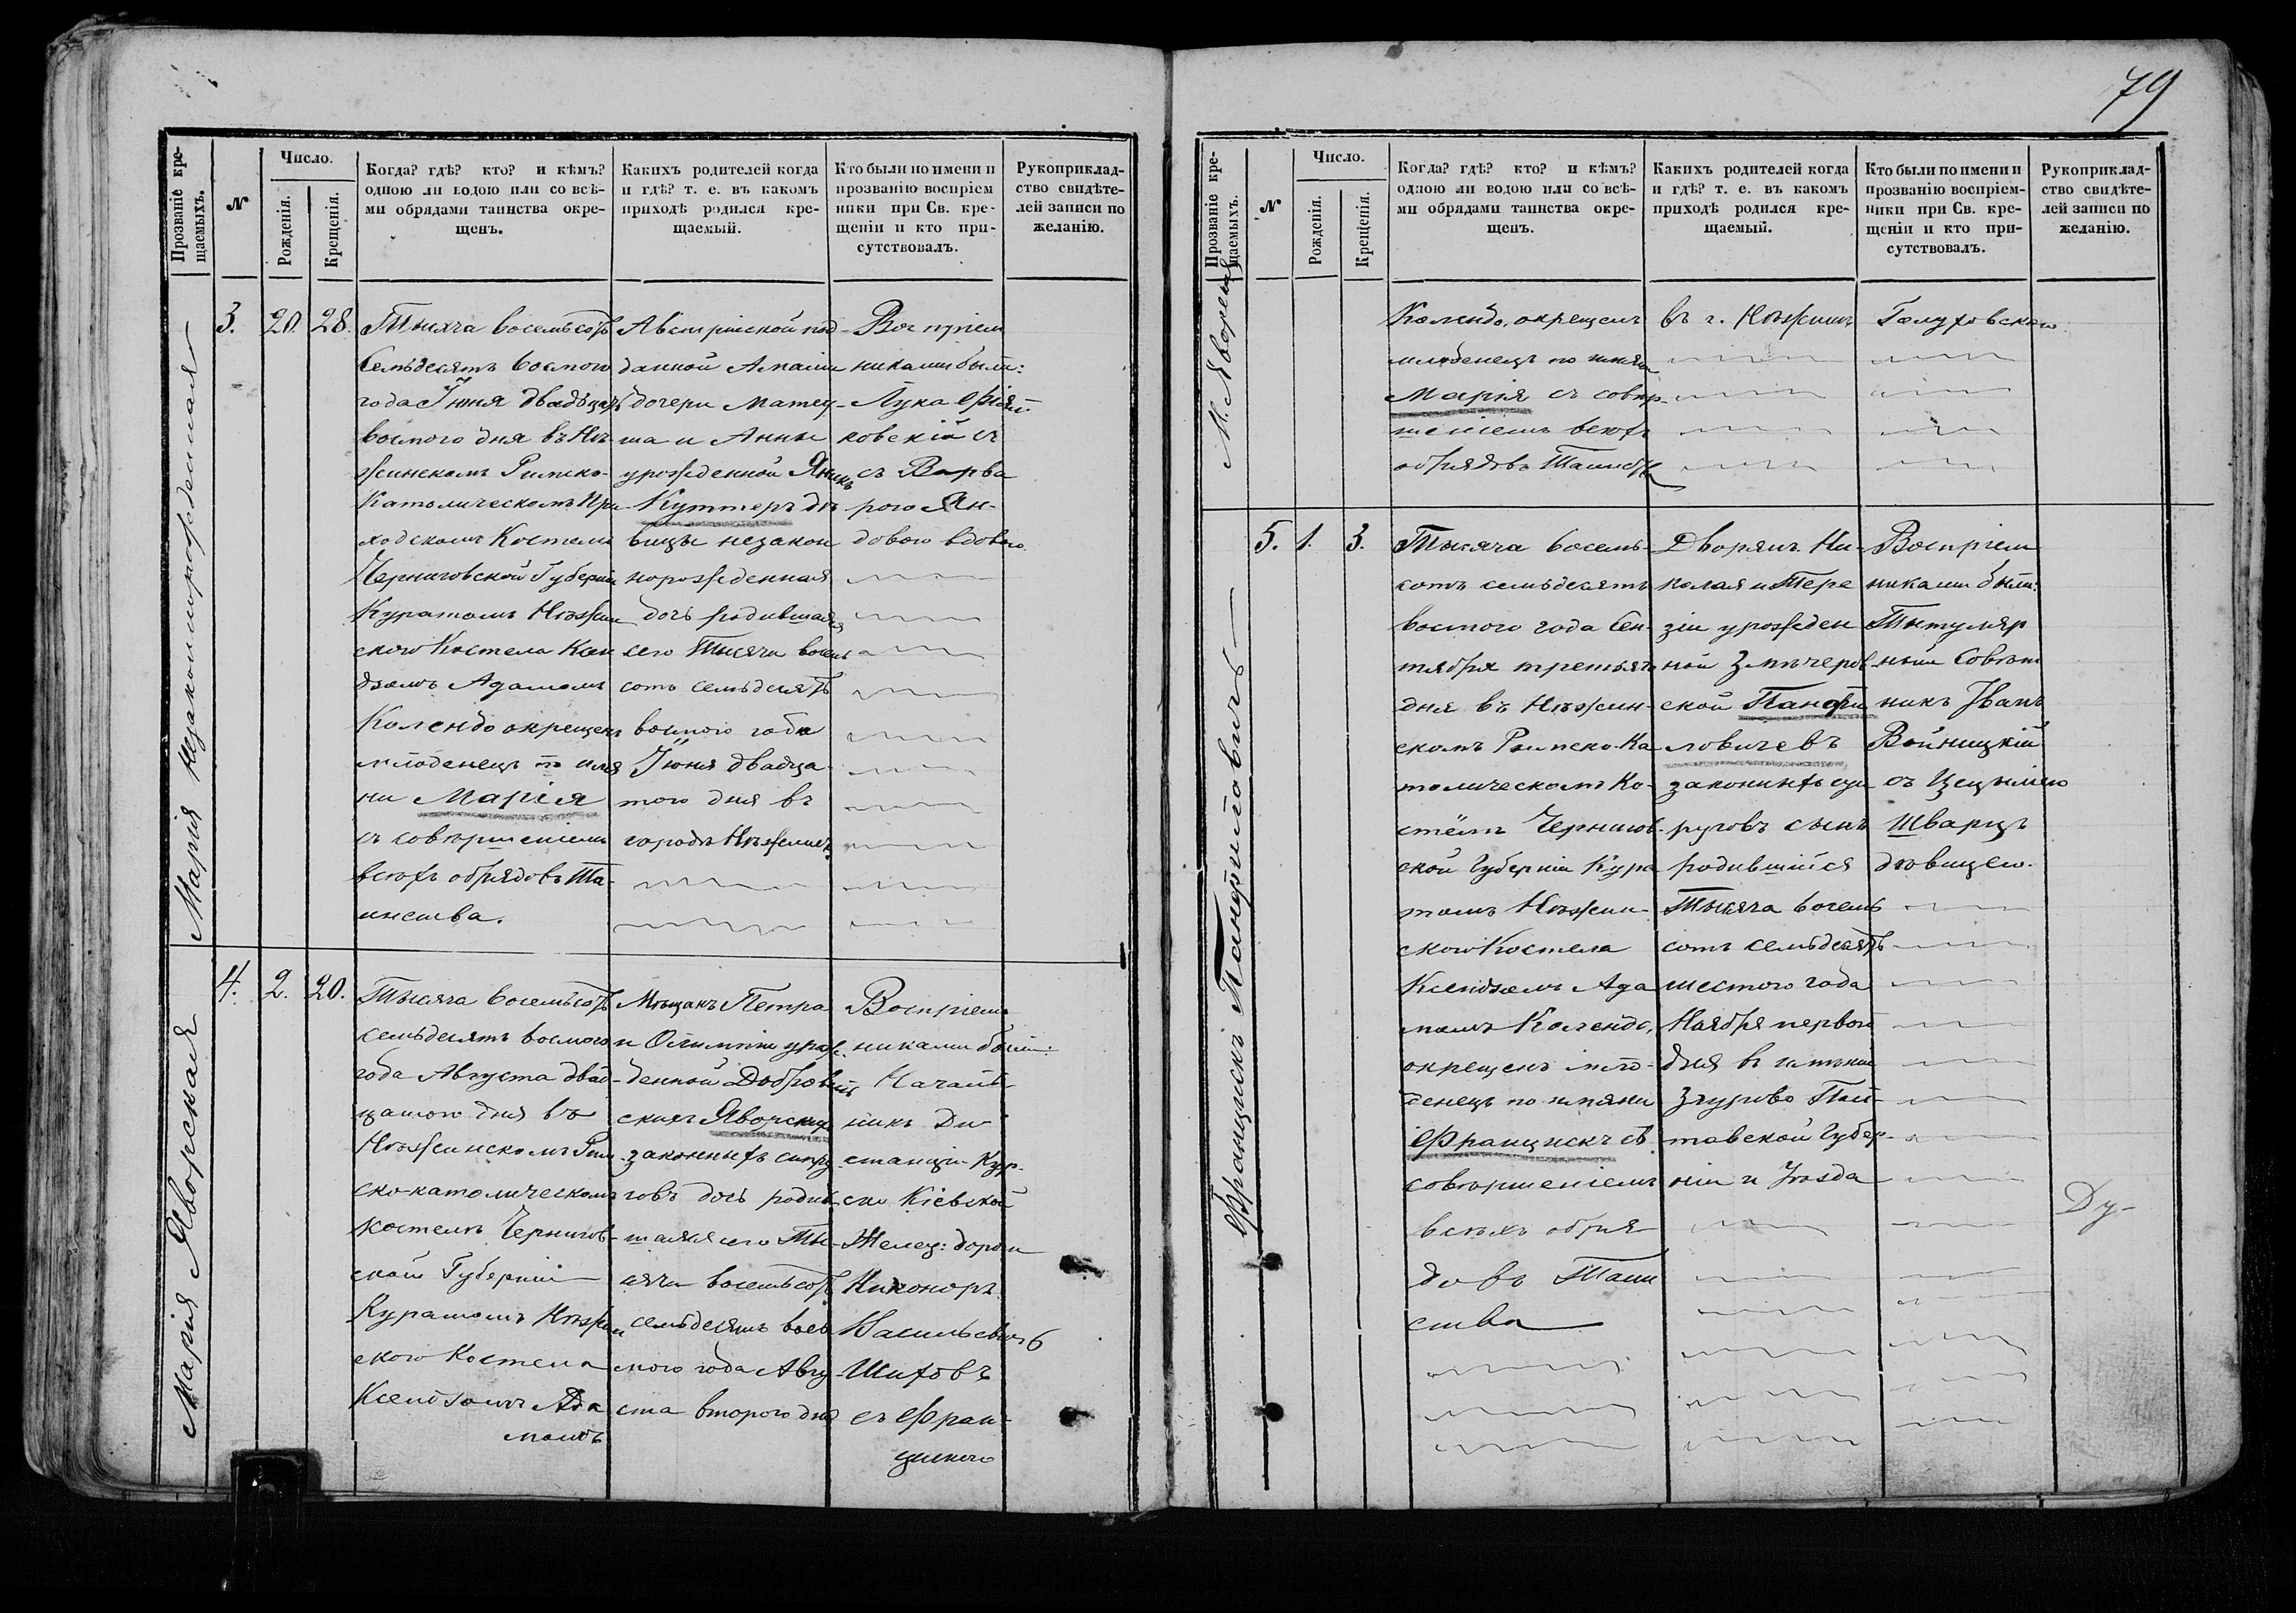 79
Прозваніе кре-
щаемыхъ.
N
Число.
Рожденія.
Крещенія.
Когда? гдѣ? кто? и кѣмъ?
одною ли водою или со всѣ-
ми обрядами таинства окре-
щенъ.
Какихъ родителей когда
и гдѣ? т. е. въ какомъ
приходѣ родился кре-
щаемый.
Кто были по имени и
прозванію воспріем
ники при Св. кре-
щеніи и кто при-
сутствовалъ.
Рукоприклад-
ство свидѣте-
лей записи по
желанію.
Марія незаконнорожденная
3.
20.
28.
Тысяча восемьсотъ
семьдесятъ восмого
года Іюня двадцать
восмого дня въ Нѣ-
жинскомъ Римско-
Католическомъ При
ходскомъ Костелѣ
Черниговской Губерніи
Куратомъ Нѣжин
скаго Костела Ксен
дзомъ Адамомъ
Колендо окрещенъ
младенецъ по име
ни Марія
съ совершеніемъ
всѣхъ обрядовъ Та-
инства.
Австрійской под-
данной
дочери Матеу-
ша и Анны
урожденной
Куттеръ дѣ
вицы незакон
норожденная
дочь родившаяся
сего Тысяча восемь
сотъ семьдесятъ
восмого года
Іюня двадца
того дня въ
городѣ Нѣжинѣ.
Воспріем
никами были:
Лука
ковскій
съ Варва
рою Ян-
довою вдовою
Марія Яворская
4.
2.
20.
Тысяча восемьсотъ
семьдесятъ восмого
года Августа двад-
цатого дня въ
Нѣжинскомъ Рим
ско-католическомъ
костелѣ Чернигов-
ской Губерніи
Куратомъ Нѣжин
скаго Костела
Ксендзомъ Ада
момъ
Мѣщанъ Петра
и Олимпіи урож-
денной Добровол
скихъ Яворскихъ
законныхъ супру
говъ дочь родив-
шаяся сего Ты-
сяча восемьсотъ
семьдесятъ вось
мого года Авгу-
ста второго дня
Воспріем
никами были:
Началь-
никъ Ди
станціи Кур-
ско Кіевской
Желез: дороги
Никоноръ
Васильевичъ
Шиховъ
съ Фран-
цишкою
Прозваніе кре-
щаемыхъ.
N
Число.
Рожденія.
Крещенія.
Когда? гдѣ? кто? и кѣмъ?
одною ли водою или со всѣ-
ми обрядами таинства окре-
щенъ.
Какихъ родителей когда
и гдѣ? т. е. въ какомъ
приходѣ родился кре-
щаемый.
Кто были по имени и
прозванію воспріем-
ники при Св. кре-
щеніи и кто при-
сутствовалъ.
Рукоприклад-
ство свидѣте-
лей записи по
желанію.
М. Яворская
Колендо, окрещенъ
младенецъ по имяни
Марія съ совер-
шеніемъ всѣхъ
обрядовъ Таинства
въ г. Нѣжинѣ
Голуховскою
Францискъ Панфиловичъ
5.
1.
3.
Тысяча восемь-
сотъ семьдесятъ
восмого года Сен-
тября третьяго
дня въ Нѣжин-
скомъ Римско-Ка
толическомъ Ко-
стелѣ Чернигов-
ской Губерніи Кура
томъ Нѣжин-
скаго Костела
Ксендзомъ Ада
момъ Колендо,
окрещенъ мла-
денецъ по имяни
Францискъ съ
совершеніемъ
всѣхъ обря
довъ Таин
ства
Дворянъ Ни-
колая и Тере
зіи урожден
ной
ской Панфи
ловичевъ
законныхъ суп
руговъ сынъ
родившійся
Тысяча восемь
сотъ семьдесятъ
шестого года
Ноября первого
дня въ имѣніи
Згурово Пол-
тавской Губер-
ніи и Уѣзда
Воспріем
никами были:
Титуляр
ный Совѣт
никъ Іванъ
Войницкій
съ Цециліею
Шварцъ
дѣвицею.
Ду-